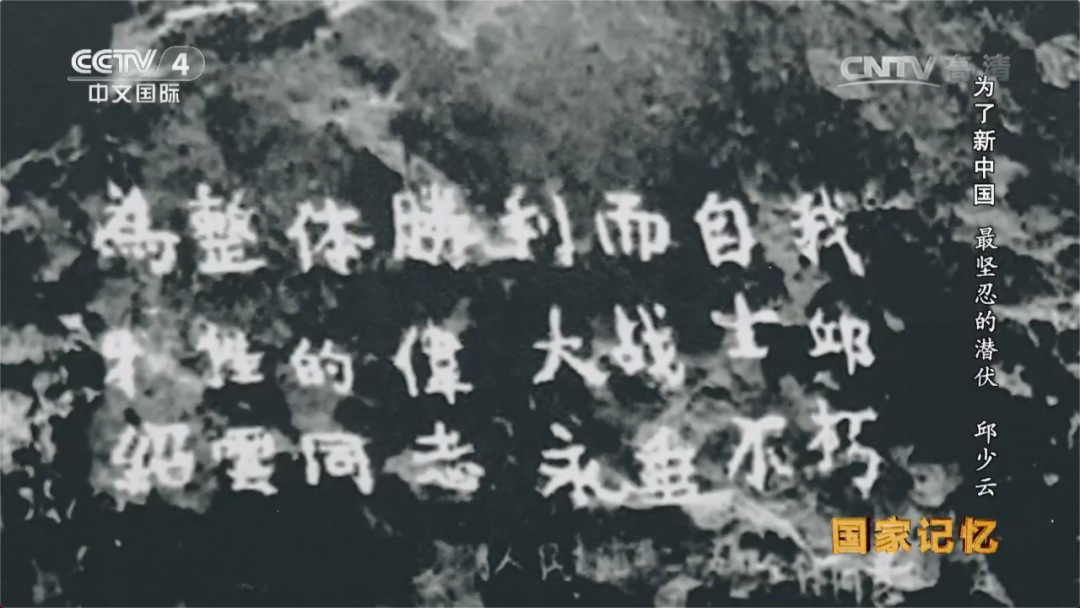 CCTV 4
中文国际
CNTV高清
为了新中国 最坚忍的潜伏 邱少云
為整体勝利而自我
牲的偉大战士邱
紹雲同志永垂不朽
国家记忆